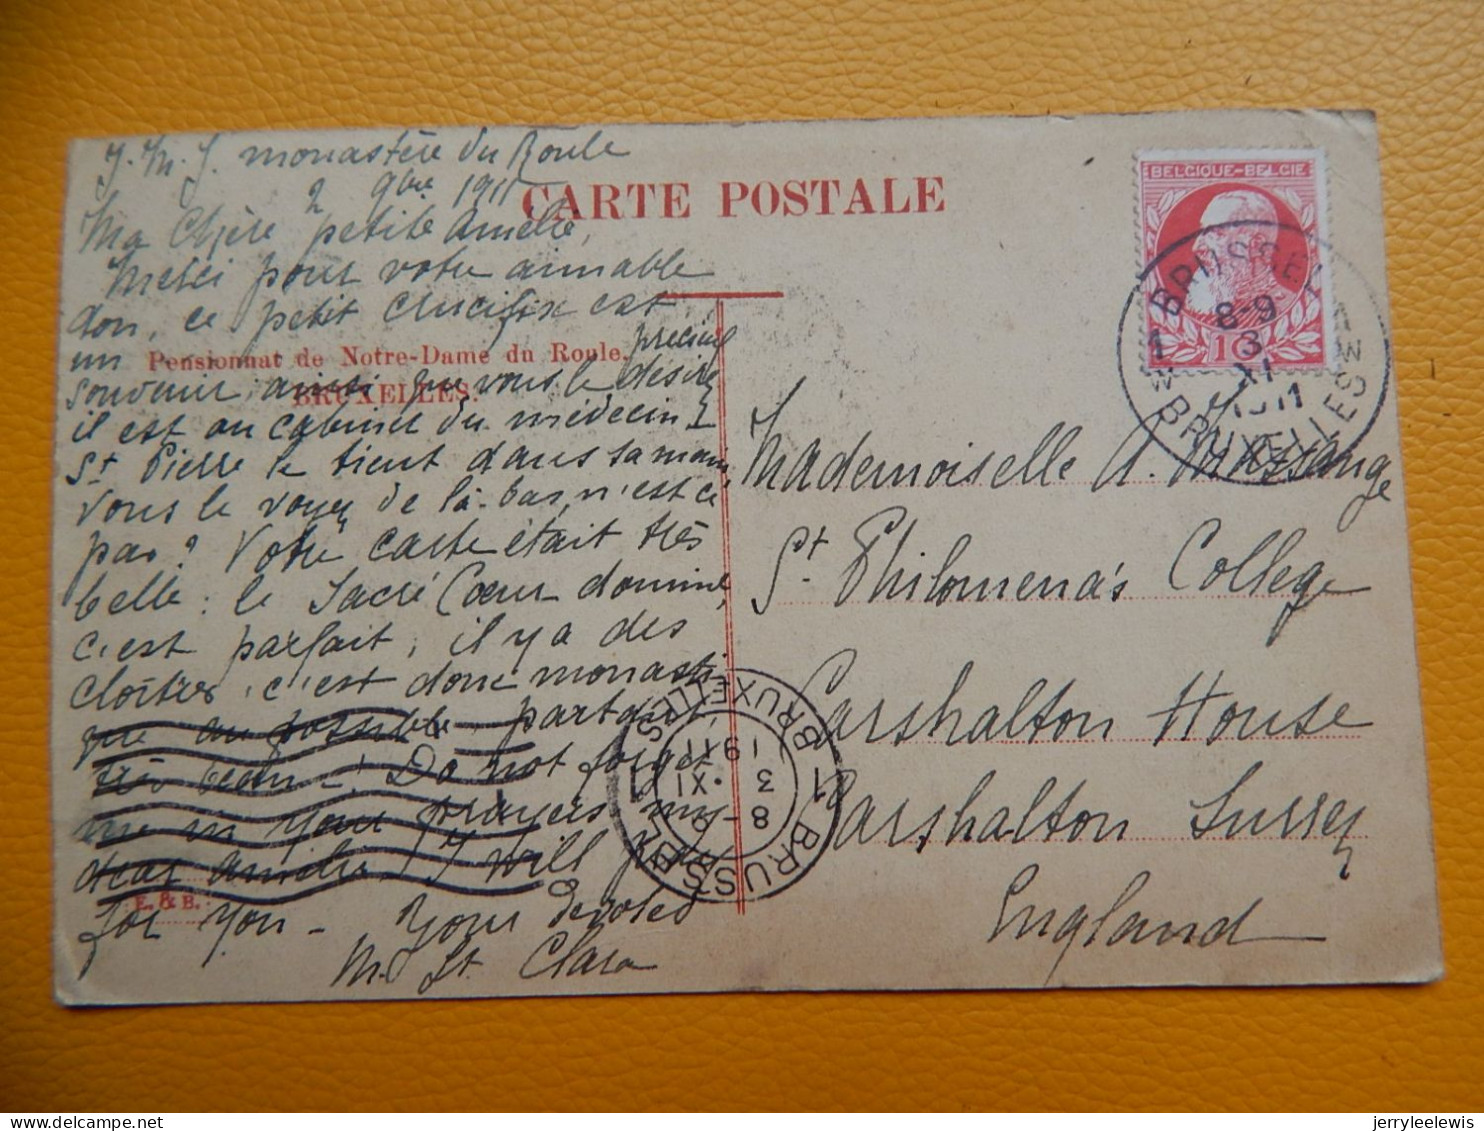 J. M. J. monastère du Roule
2 9bre 1911
CARTE POSTALE
Ma Chère petite Amélie,
Merci pour votre aimable
don, ce petit crucifix est
un précieux
Pensionnat de Notre-Dame du Roule,
BRUXELLES.
souvenir ainsi que vous le désirez
il est au cabinet du médecin,
St Pierre le tient dans sa main,
vous le voyez de là-bas, n'est ce
pas? Votre carte était très
belle: le Sacré Cœur domine,
c'est parfait, il y a des
cloîtres, c'est donc monasti-
que au possible, partout,
très beau-! Do not forget
me in your prayers my
dear Amélie I will pray
for you - Your devoted
M. St. Clara
E. & B.
BELGIQUE-BELGIE
10
BRUSSEL 1 BRUXELLES
8-9
3
XI
1911
Mademoiselle A.
St Philomena's College
Carshalton House
Carshalton Surrey
England
1 BRUSSEL 1 BRUXELLES
8-9
3
XI
1911
jerryleelewis